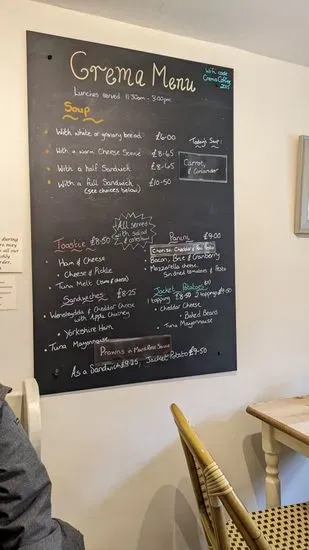 Crema Menu
Wifi code
Crema Coffee
Lunches served 11:30am - 3:00pm
Soup
With white or granary bread £6.00
With a warm Cheese Scone £8.65
With a half Sandwich £8.65
With a full Sandwich £10.50
(see choices below)
Today's Soup:
Carrot
& Coriander
All served
with salad
Toastie £8.50
Ham & Cheese
Cheese & Pickle
Tuna Melt
Sandwiches £8.25
Wensleydale & Cheddar Cheese
with Apple Chutney
Yorkshire Ham
Tuna Mayonnaise
Panini £9.00
Bacon, Brie & Cranberry
Mozzarella cheese
Sun dried tomatoes & Pesto
Jacket Potatoes
1 topping £8.50 2 toppings £9.50
Cheddar Cheese
Baked Beans
Tuna Mayonnaise
Prawns in Marie Rose Sauce
As a Sandwich £9.25, Jacket Potato £9.50
during